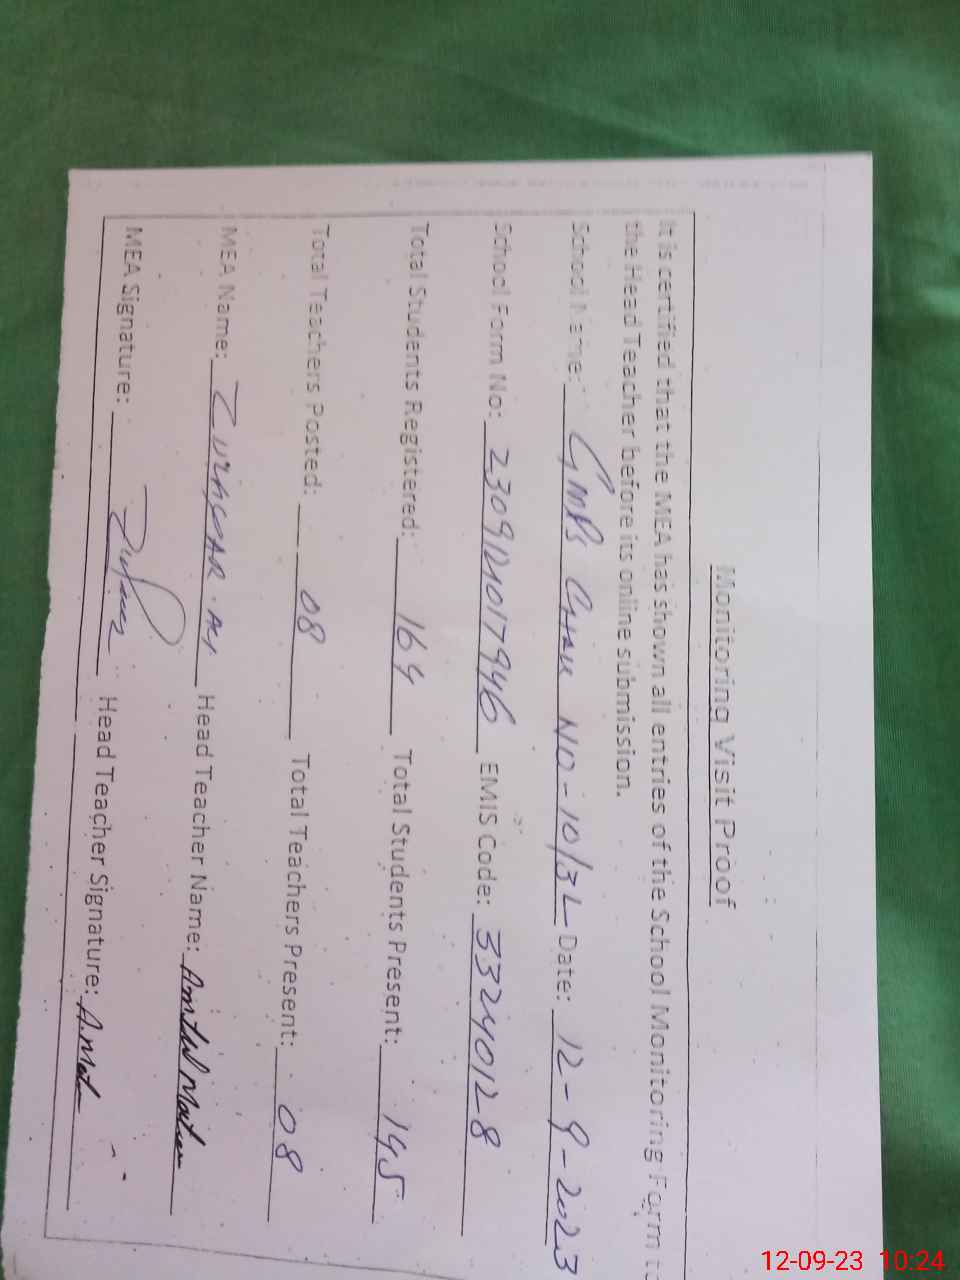 Monitoring Visit Proof
It is certified that the MEA has shown all entries of the School Monitoring Form to
the Head Teacher before its online submission.
School Name: GMPS Chak NO-10/3L Date: 12-9-2023
School Form No: EMIS Code: 33240128
Total Students Registered: 164 Total Students Present: 145
Total Teachers Posted: 08 Total Teachers Present: 08
MEA Name: Head Teacher Name:
MEA Signature: Head Teacher Signature:
12-09-23 10:24